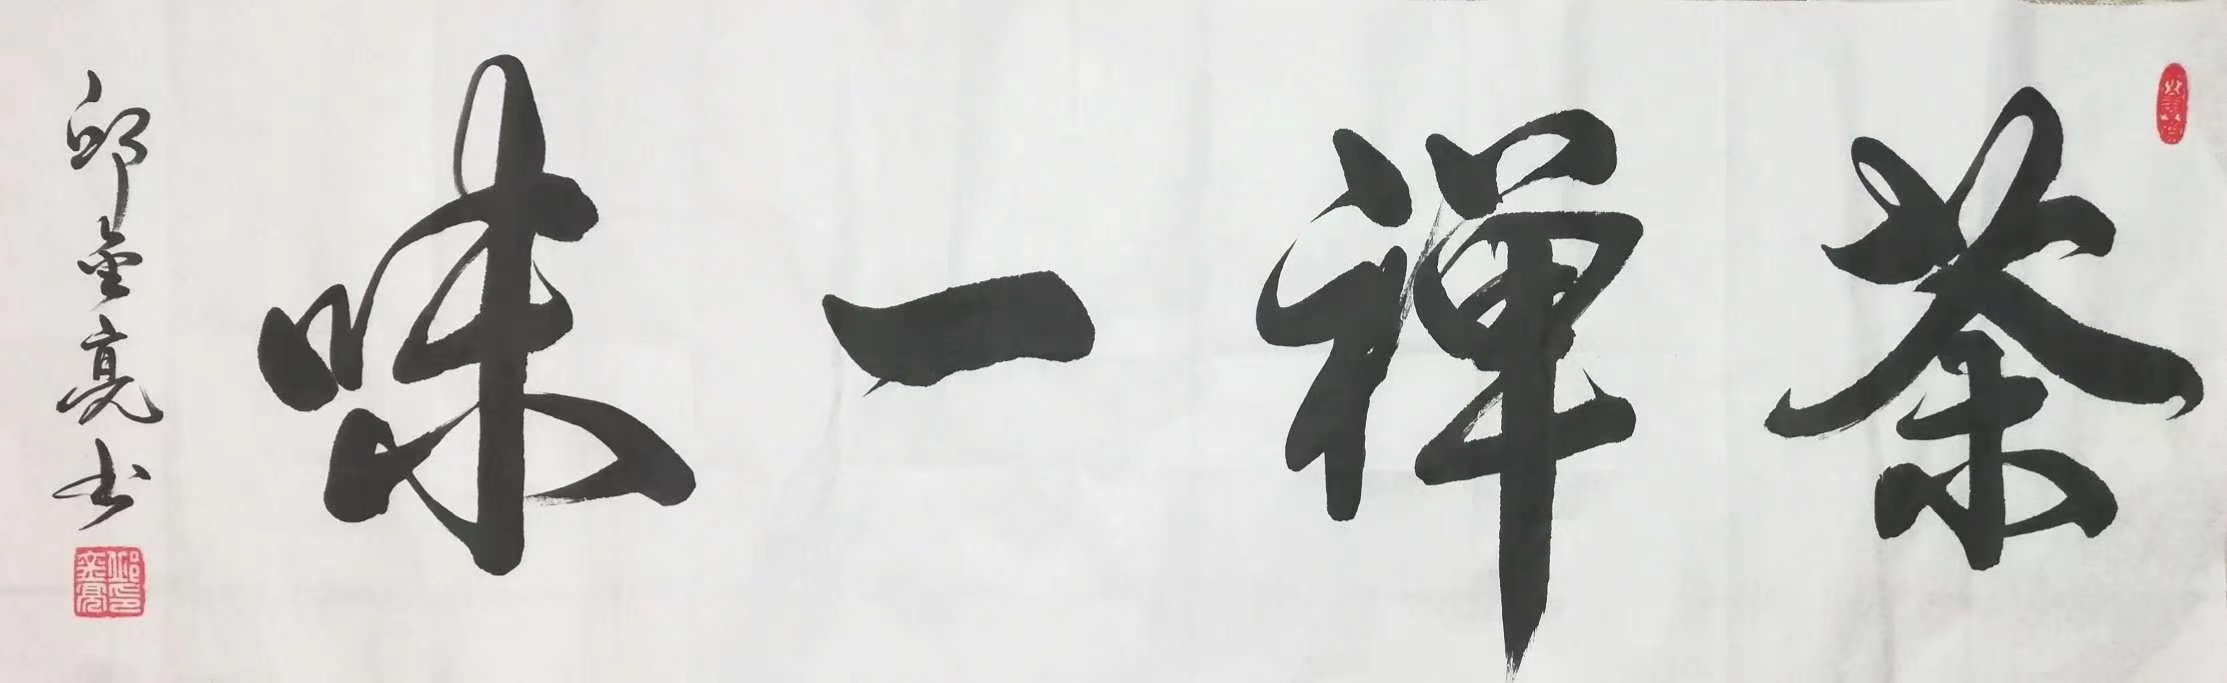 茶禅一味
邱金亮书